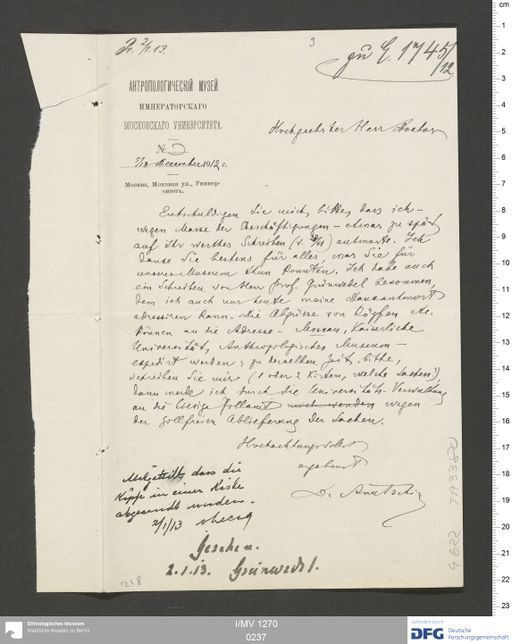 Pr. 2/1.13.
3
zu E. 1745/12
АНТРОПОЛОГИЧЕСКІЙ МУЗЕЙ
ИМПЕРАТОРСКАГО
МОСКОВСКАГО УНИВЕРСИТЕТА.
№
December 1912 г.
Москва, Моховая ул., Универ-
ситетъ.
Hochgeehrter Herr Doctor
Entschuldigen Sie mich, bitte, dass ich -
wegen Masse der Beschäftigungen - etwas zu spät
auf Ihr werthes Schreiben antworte. Ich
danke Sie bestens für alles, was Sie für
unseres Museum thun konnten. Ich habe auch
ein Schreiben von Herr Prof. Grünwedel bekommen,
dem ich auch nur heute meine Dankantwort
adressiren kann. Die Abgüsse von Köpfen etc.
können an die Adresse - Moskau, Kaiserliche
Universität, Anthropologisches Museum -
expedirt werden; zu derselben Zeit, bitte,
schreiben Sie mir (1 oder 2 Kisten, welche Sachen?),
dann werde ich durch die Universitäts-Verwaltung
an die hiesige Zollamt wegen
der zollfreien Ablieferung der Sachen.
Hochachtungsvollst
ergebenst
D. Anutschin
Mitgeteilt, dass die
Köpfe in einer Kiste
abgesandt werden.
2/1/13
Gesehen.
2.1.13. Grünwedel.
218
Ethnologisches Museum
Staatliche Museen zu Berlin
I/MV 1270
0237
Gefördert durch
DFG Deutsche
Forschungsgemeinschaft
cm
1
2
3
4
5
6
7
8
9
10
11
12
13
14
15
16
17
18
19
20
21
22
23